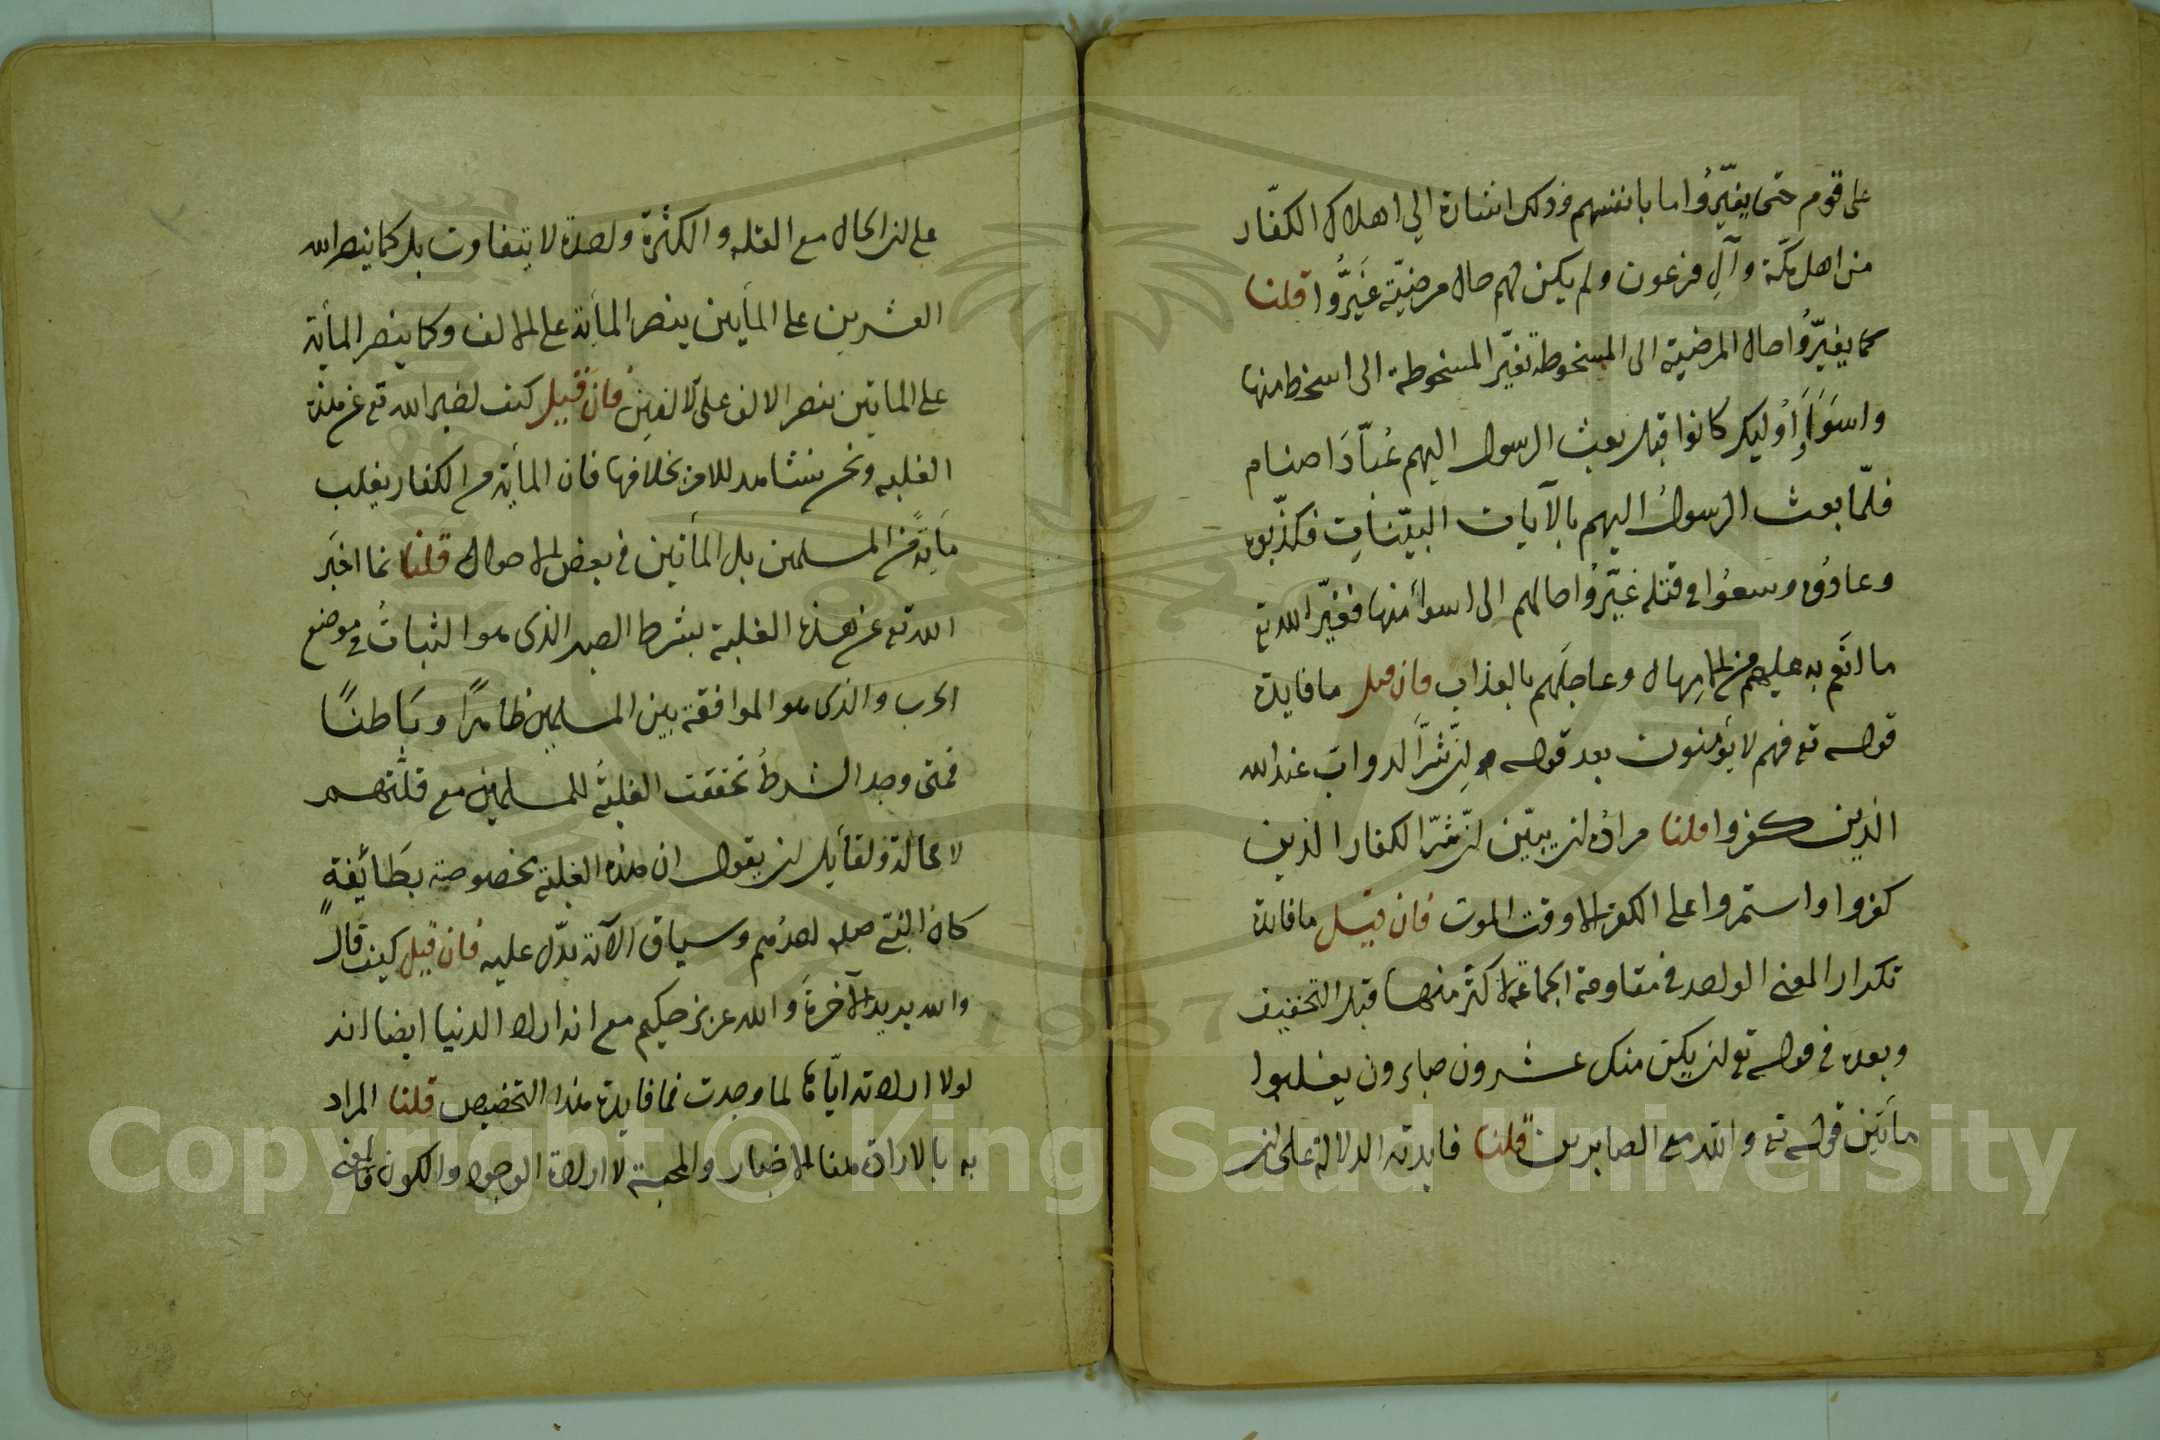 على قوم حتى يغيّرُوا ما بانفسهم وذلك اشارة الي اهلاك الكفّار
من اهل مكّة وآلِ فرعون ولم يكن لهم حال مرضيّة غَيَّرُوا قلنا
كما يغيّرُ الحال المرضية الى المسخوطة تغيّر المسخوطة الى اسخط منها
واسوَأَ واُوليك كانوا قبل بعث الرسول اليهم عُبّادَ اصنام
فلمّا بعث الرسولُ اليهم بالآيات البيّنات فكذّبوه
وعادُوه وسعوُا في قتله غيّرُوا حالهم الى اسوأ منها فغيّر الله تع
ما انعَم به عليهم من الامهال وعاجلَهم بالعذاب فان قيل ما فايدة
قوله تع فهم لا يؤمنون بعد قوله ان شرّ الدواب عند الله
الذين كفروا قلنا مرادُه ان يبيّن انّ شرّ الكفار الذين
كفروا واستمروا على الكفر الى وقت الموت فان قيل ما فايدة
تكرار المعنى الواحد في مقاومة الجماعة لاكثر منها قبل التخفيف
وبعده في قوله تع ان يكن منكم عشرون صابرون يغلبوا
مأتين قوله تع والله مع الصابرين قلنا فايدته الدلالة على ان
على ان الحال مع القلة والكثرة واحدة لا يتفاوت بل كما ينصر الله
العشرين على المأيتين ينصر المأية على الالف وكما ينصر المأية
على الماتين ينصر الالف على الالفين فان قيل كيف اخبر الله تع عن هذه
الغلبة ونحن نشاهد الامر بخلافها فان المأية من الكفار يغلب
مأية من المسلمين بل المأتين في بعض الاحوال قلنا انما اخبَر
الله تع عن هذه الغلبة بشرط الصبر الذى هو الثباتُ في موضع
الحرب والذى هو الموافقة بين المسلمين ظاهرًا وبَاطنًا
فمتى وجد الشرطُ تحققت الغلبَةُ للمسلمين مع قلّتهم
لا محالة ولقايل ان يقول ان هذه الغلبة مخصوصة بطَائفةٍ
كان النبي صلعم احدُهم وسياق الآية يدّل عليه فان قيل كيف قال
والله يريد الآخرةَ والله عزيز حكيم مع انه اراد الدنيا ايضا لانه
لولا ارادته ايّاها لما وجدت فما فايدة هذا التخصيص قلنا المراد
به بالارادة هنا الاختيار والمحبة لا ارادة الوجود والكون فالمعنى
Copyright © King Saud University
1957